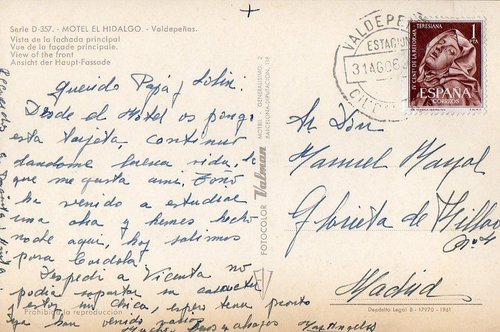 Serie D-357. - MOTEL EL HIDALGO. - Valdepeñas.
Vista de la fachada principal
Vue de la façade principale.
View of the front
Ansicht der Haupt-Fassade
Querido Papá y
Desde el Hotel os pongo
esta tarjeta, continuo
dandome buena vida, lo
que me gusta a mi, Toño
ha venido a estudiar
una obra y hemos hecho
noche aqui, hoy salimos
para Cordoba
Despedi a Vicenta no
podia soportar su caracter
estoy sin chica, espero tener pronto
han venido
y abrazos
Prohibida la reproducción
FOTOCOLOR Valman
MOTEL GENERALISIMO, 2
BARCELONA-DIPUTACION, 118
VALDEPEÑ
ESTAFE
31 AGO 6
TERESIANA
IV CENT DE LA REFORMA
1 PTA
ESPAÑA
CORREOS
Sr. Don
Manuel Mayol
Glorieta de
nº 4
Madrid
Depósito Legal B - 17970 - 1961